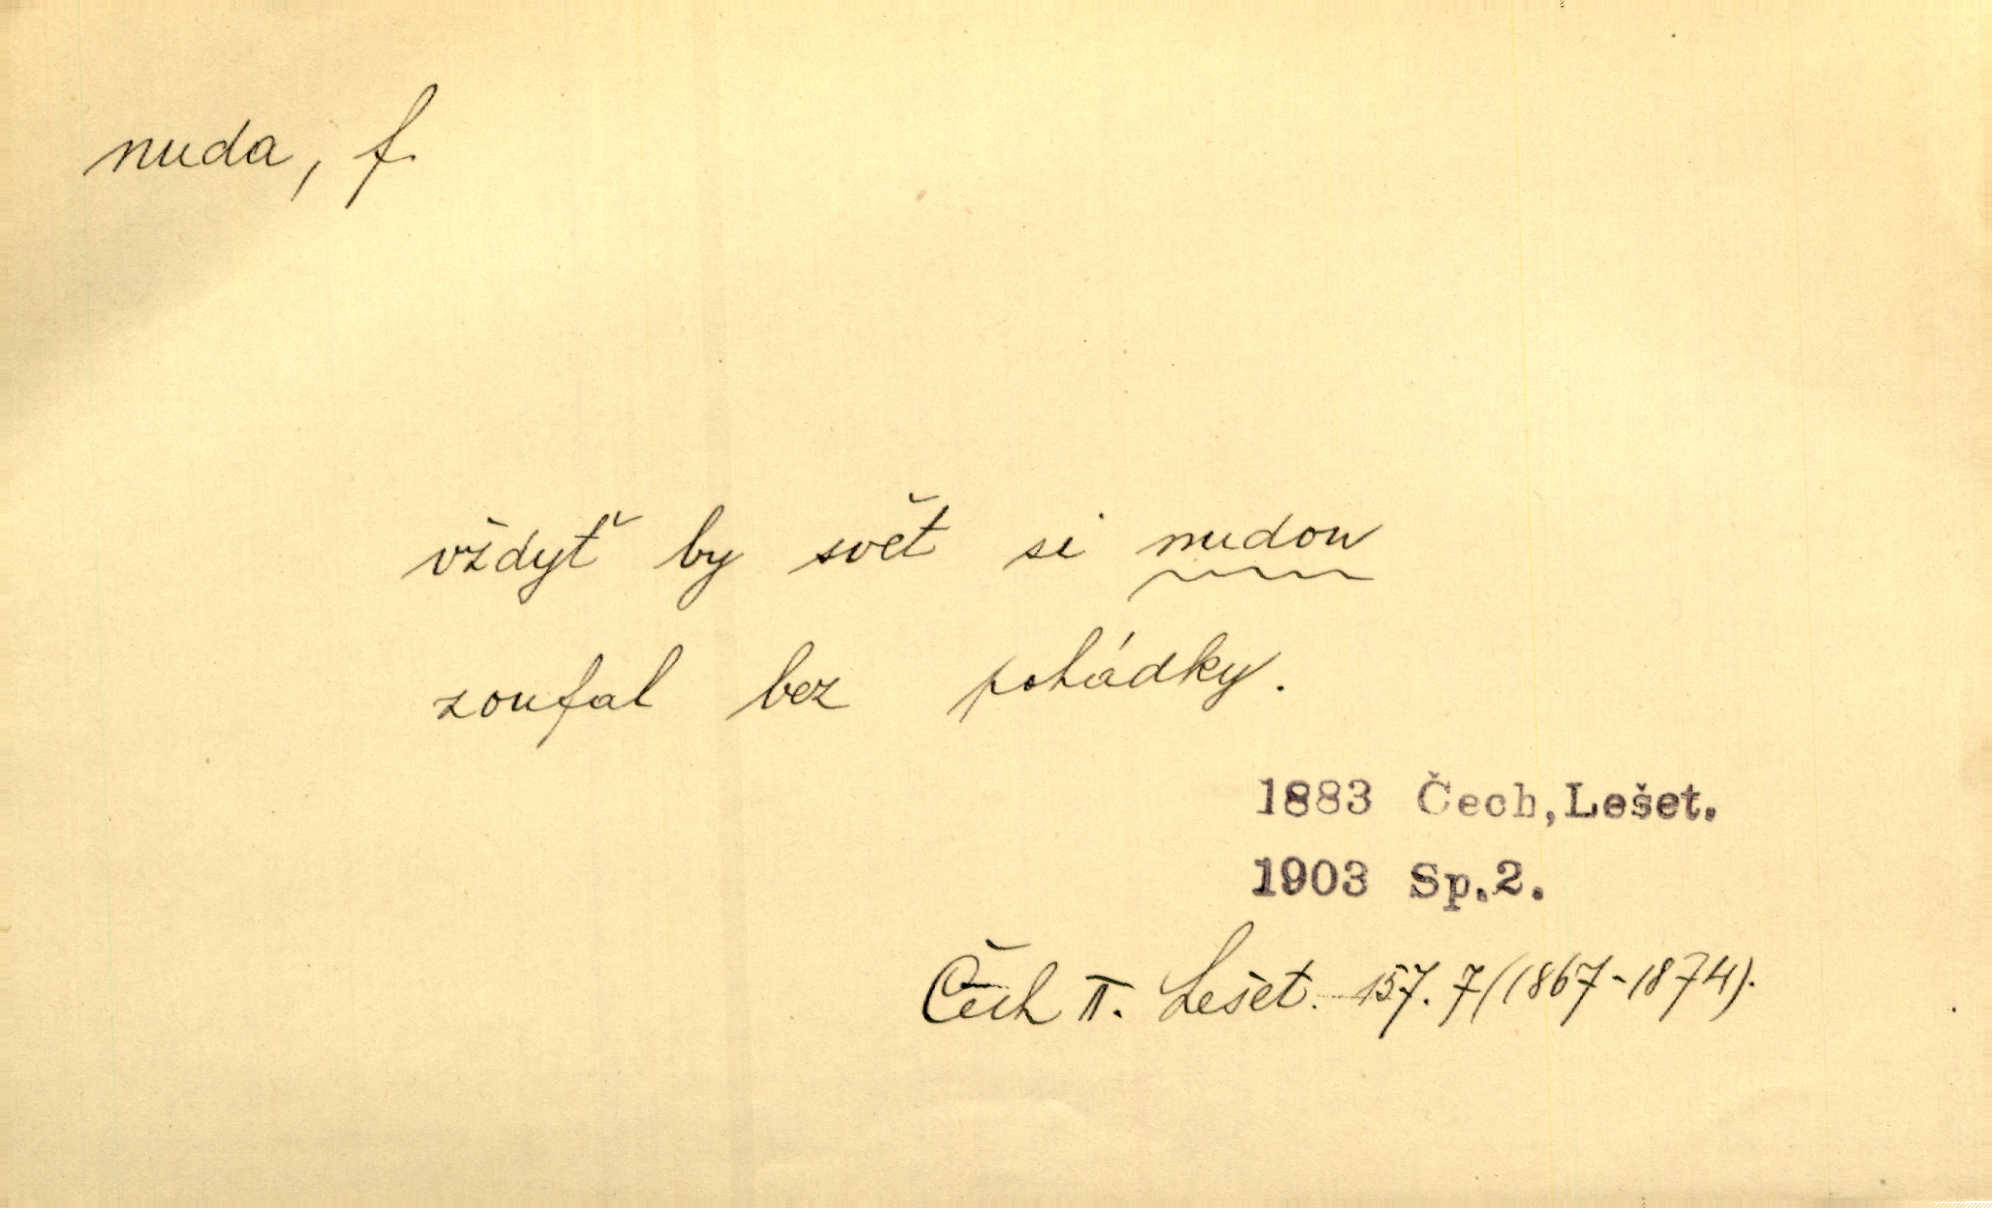 nuda, f.
vždyť by svět si nudou
zoufal bez pohádky.
1883 Čech, Lešet.
1903 Sp.2.
Čech II. Lešet. 157. 7 (1867-1874).